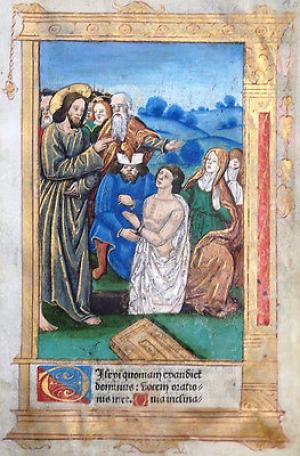 Dilexi quoniam exaudiet
dominus: vocem oratio-
nis mee. Quia inclina-